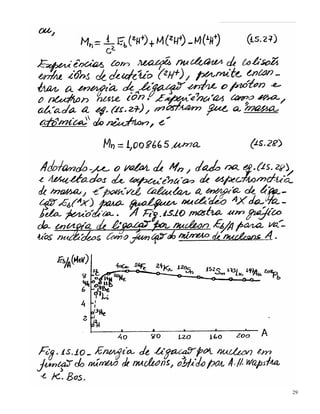 ou,
Mn = 1/c² Eb(²H⁺) + M(²H⁺) - M(¹H⁺) (1.5.27)
Experiências com reações nucleares de colisões
entre íons de deutério (²H⁺), permite encon-
trar a energia de ligação entre o próton e
o nêutron nesse íon. Experiências como essa,
aliada a eq. (1.5.27), mostram que a "massa
atômica" do nêutron, é
Mn = 1,008665 uma (1.5.28)
Adotando-se o valor de Mn, dado na eq. (1.5.28),
e resultados de experiências de espectrometria
de massa, é possível calcular a energia de liga-
ção Eb(ᴬX) para qualquer nuclídeo ᴬX da ta-
bela periódica. A Fig. 1.5.10 mostra um gráfico
da energia de ligação por nucleon Eb/A para vá-
rios nuclídeos como função do número de nucleons A.
Eb/A (MeV)
8
6
4
2
40 80 120 160 200 A
Fig. 1.5.10 - Energia de ligação por nucleon em
função do número de nucleons, obtido por A. H. Wapstra
e K. Bos.
29